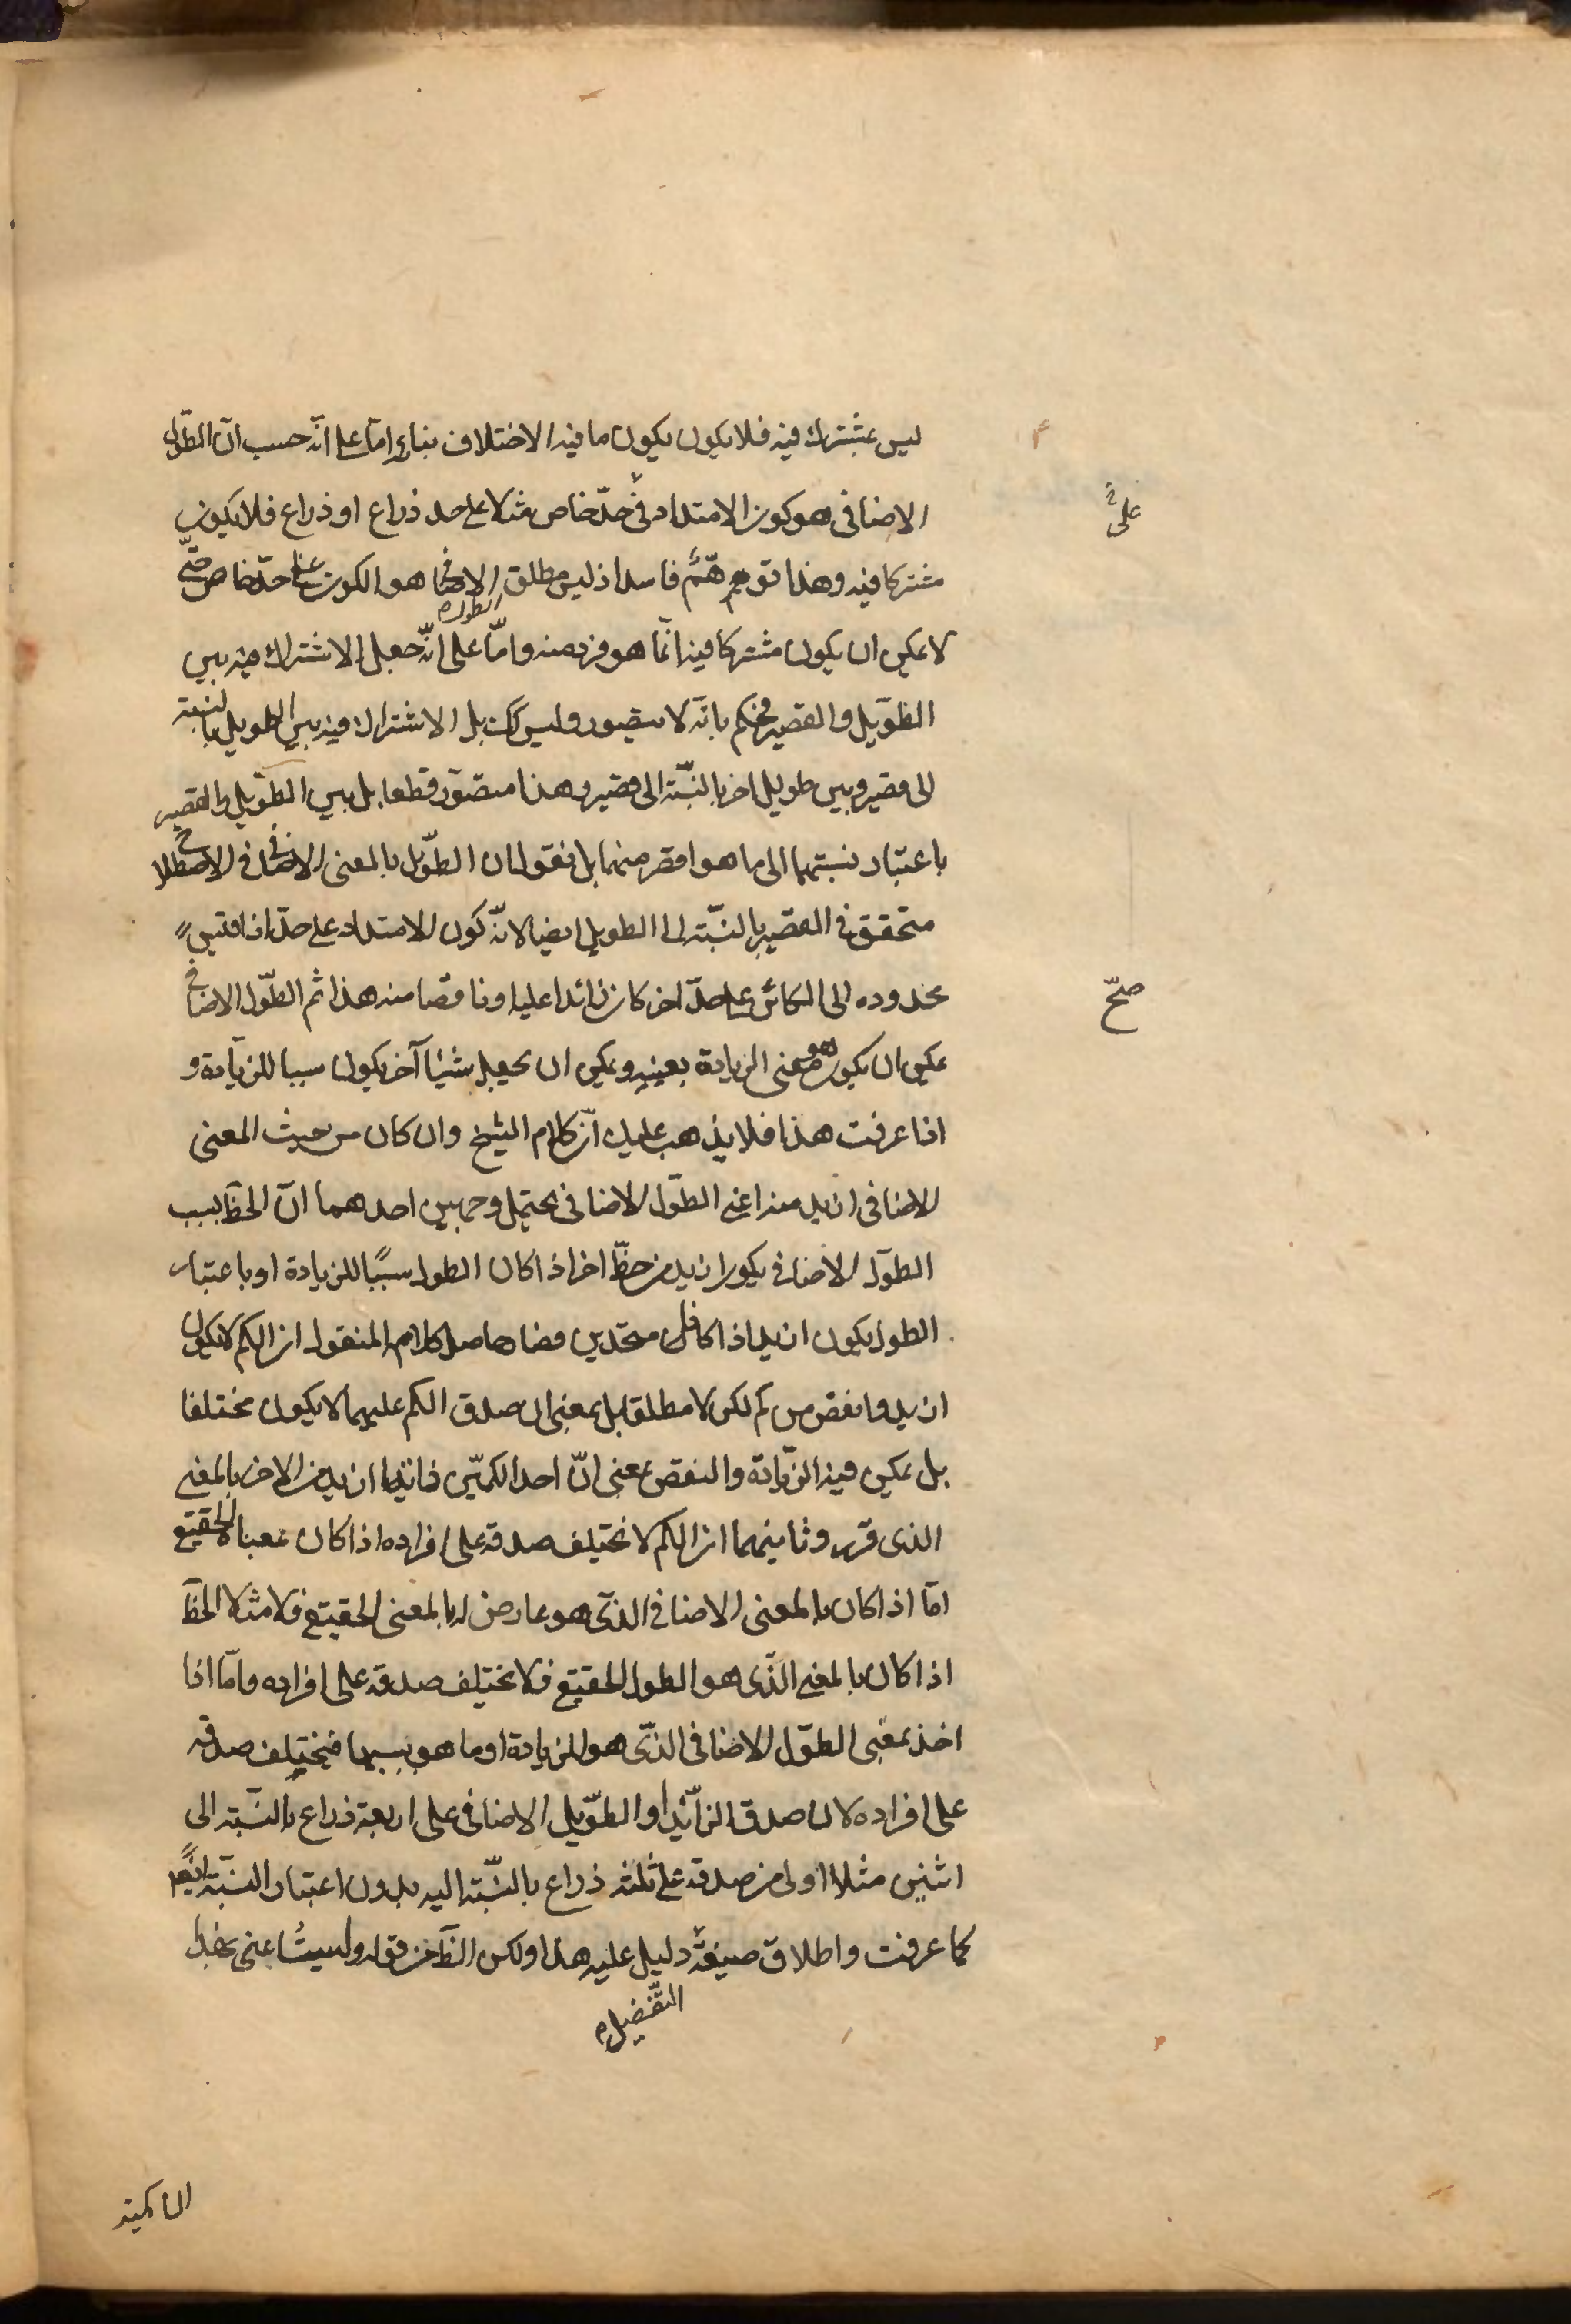 ليس بمشترك فيه فلا يكون يكون ما فيه الاختلاف بناء امّا على انّه حسب انّ الطّول
الاضافى هو كون الامتداد فى حدّ خاص مثلا على حد ذراع او ذراع فلا يكون
على
مشتركا فيه وهذا توهّم فاسد اذ ليس مطلق الاضافى هو الكون على حدّ خاص حتّى
الطول
لا يمكن ان يكون مشتركا فيه انّما هو فرد منه وامّا على انّه جعل الاشتراك فيه بين
الطّويل والقصير فحكم بانّه لا يتصور وليس كك بل الاشتراك فيه بين الطويل بالنسبة
الى قصير وبين طويل اخر بالنّسبة الى قصير وهذا متصوّر قطعا بل بين الطّويل والقصير
باعتبار نسبتهما الى ما هو اقصر منهما بل نقول ان الطّويل بالمعنى الاضافى فى الاصطلاح
متحقق فى القصير بالنّسبة الى الطويل ايضا لانّه كون الامتداد على حدّ اذا قيس
بحدوده الى الكائن على حدّ اخر كان زائدا عليه او ناقصا منه هذا ثم الطّول الاضافى
صحّ
يمكن ان يكون هو معنى الزيادة بعينه ويمكن ان يجعل شيئا آخر يكون سببا للزّيادة و
اذا عرفت هذا فلا يذهب عليك انّ كلام الشيخ وان كان من حيث المعنى
الاضافى ازيد منه اعنى الطّول الاضافى يحتمل وجهين احدهما انّ الخطّ بسبب
الطّول الاضافى يكون ازيد من خطّ اخر اذا كان الطول سببًا للزيادة او باعتبار
الطول يكون ازيد اذا كانا متحدين فصار حاصل كلام المنقول ان الكم لا يكون
ازيد وانقص من كم لكن لا مطلقا بل بمعنى ان صدق الكم عليهما لا يكون مختلفا
بل يمكن فيه الزّيادة والنقص بمعنى انّ احد الكمّين ازيد من الاخر بالمعنى
الذى قرر وثانيهما ان الكم لا يختلف صدقه على افراده اذا كان بمعناه الحقيقى
امّا اذا كان بالمعنى الاضافى الذّى هو عارض له بالمعنى الحقيقى فلا مثلا الخطّ
اذا كان بالمعنى الذّى هو الطول الحقيقى فلا يختلف صدقه على افراده وامّا اذا
اخذ بمعنى الطّول الاضافى الذّى هو الزيادة او ما هو بسببها فيختلف صدقه
على افراده لان صدق الزّائد او الطّويل الاضافى على اربعة ذراع بالنّسبة الى
اثنين مثلا اولى من صدقه على ثلثة ذراع بالنّسبة اليه بدون اعتبار النسبة ايضا
كما عرفت واطلاق صيغة دليل عليه هذا ولكن الظّ من قوله ولست اعنى بهذا
التّفضيل
ان كمية